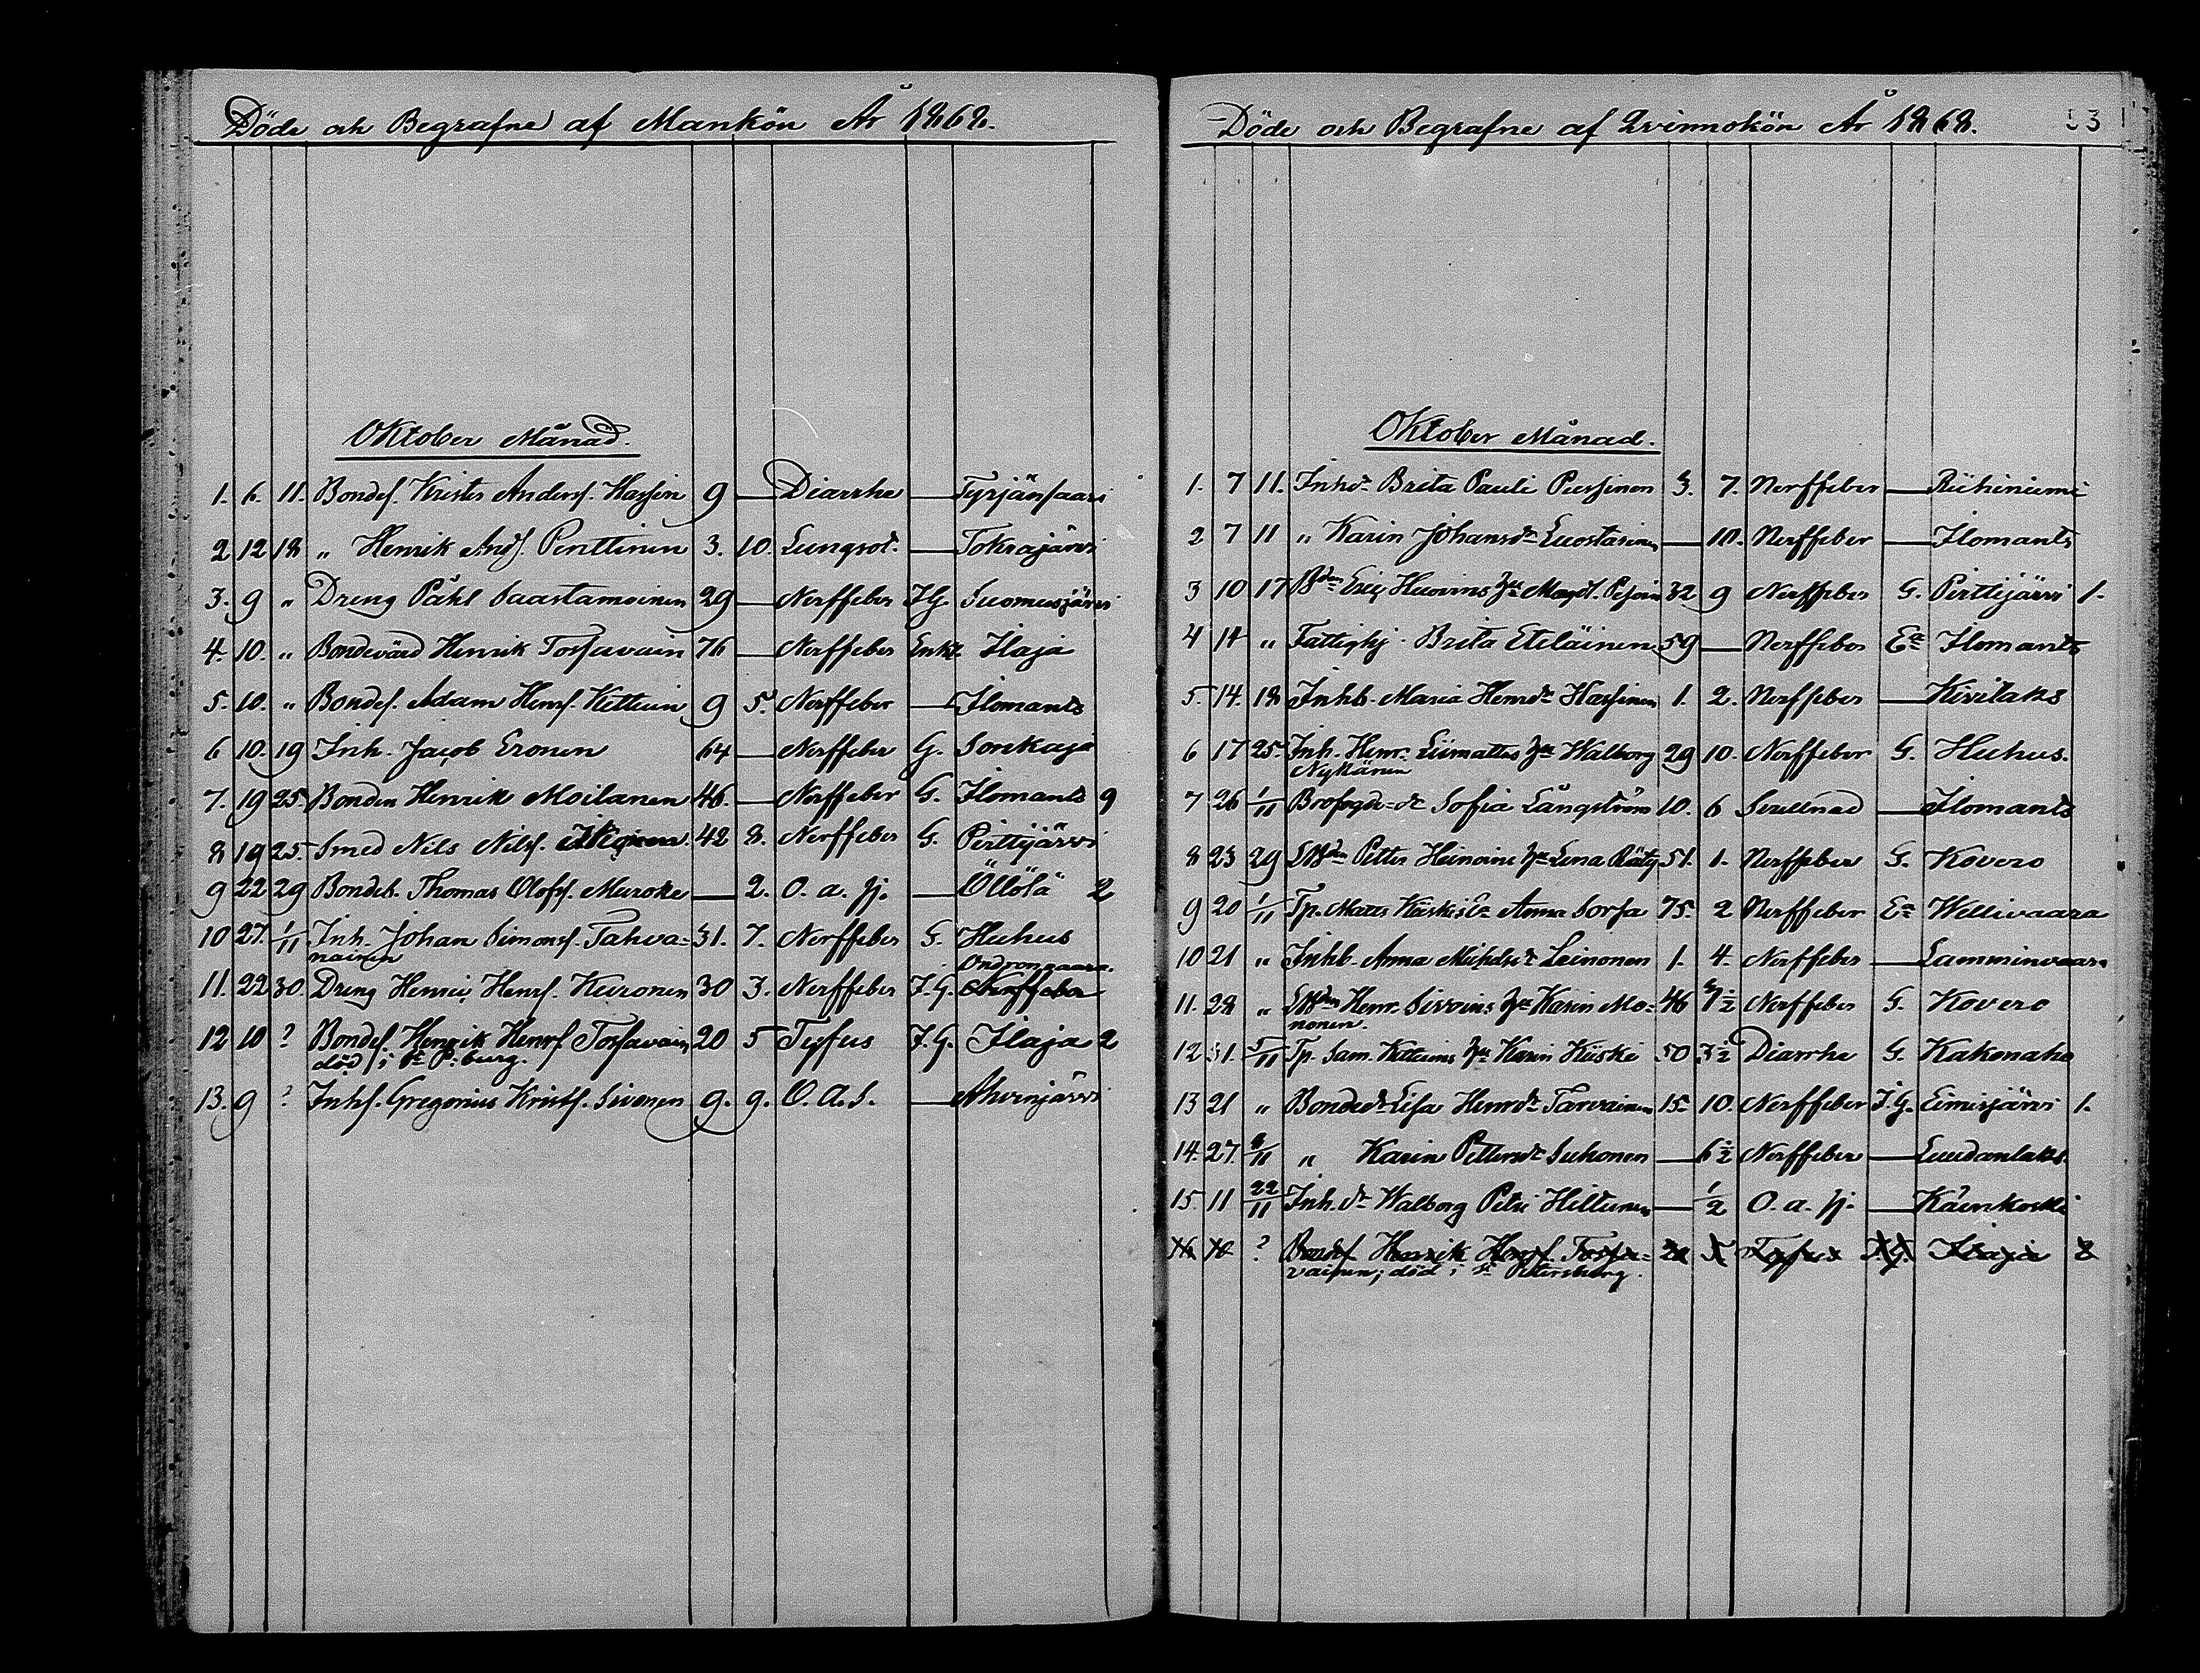 Döde och Begrafne af Mankön År 1868.
Oktober Månad.
1. 6. 11. Bondes. Krister Anders. Hassinen 9 — Diarrhe — Tyrjänsaari
2 12 18 " Henrik Ands. Penttinen 3. 10. Lungsot. — Tokrajärvi
3. 9 " Dreng Påhl Saastamoinen 29 — Nerffeber J.G. Suomusjärvi
4. 10. " Bondevärd Henrik Tossavain 76 — Nerffeber Enkl. Ilaja
5. 10. " Bondes. Adam Henrs. Kettuin 9 5. Nerffeber — Ilomants
6 10. 19 Inh. Jacob Eronen 64 — Nerffeber G. Sonkaja
7. 19 25. Bonden Henrik Moilanen 46. — Nerffeber G. Ilomants 9
8 19 25. Smed Nils Nilss. 42 8. Nerffeber G. Perttijärvi
9 22 29 Bondeb. Thomas Olofs. Muroke — 2. O. a. sj. — Öllölä 2
10 27. 1/11 Inh. Johan Simonss. Tahva= 31. 7. Nerffeber G. Huhus
nainen
Ondronvaara.
11. 22 30. Dreng Henric Henrs. Kuronen 30 3. Nerffeber J.G. Nerffeber
12 10 ? Bondes. Henrik Henrs Tossavain 20 5 Tyfus J.G. Ilaja 2
död i St P:burg.
13. 9 ? Inhs. Gregorius Krists. Sivonen 9. 9. O. a. s. — Ahvenjärvi
Döde och Begrafne af Qvinnokön År 1868. 53
Oktober Månad.
1. 7 11. Inhdr Brita Pauli Pussinen 3. 7. Nerffeber — Riihiniemi
2 7 11 " Karin Johansdr Luostarinen — 10. Nerffeber — Ilomants
3 10 17 Bden Eric Huovins hu Magd. Pesoin 32 9 Nerffeber G. Perttijärvi 1.
4 14 " Fattighj. Brita Eteläinen 59 — Nerffeber Ea Ilomants
5. 14. 18 Inhb. Maria Henrdr Hassinen 1. 2. Nerffeber — Kivilaks
6 17 25. Inh. Henr. Liimattas hu Walborg 29 10. Nerffeber G. Huhus.
Nykänen
7 26 1/11 Brofogde=dr Sofia Långström 10. 6 Svullnad — Ilomants
8 23 29 LBden Petter Heinoins hu Lena Räty 51. 1. Nerffeber G. Kovero
9 20 1/11 Tp. Matts Kiiskis Ea Anna Sorsa 75. 2 Nerffeber Ea Wellivaara
10 21 " Inhb. Anna Michelsdr Leinonen 1. 4. Nerffeber — Lamminvaara
11. 28 " LBden Henr. Sivoins hu Karin Mo= 46 Nerffeber G. Kovero
nonen.
12 31. 5/11 Tp. Sam. Kettuins hu Karin Kiiski 50 3 1/2 Diarrhe G. Kakonaho
13 21 " Bondedr Lisa Henrdr Tarvainen 15. 10. Nerffeber J.G. Eimisjärvi 1.
14. 27. 8/11 " Karin Pettersdr Suhonen — 6 1/2 Nerffeber — Luudanlaks.
15. 11 22/11 Inh. dr Walborg Petri Hiltunen — 1/2 O. a. sj. — Käenkoski
16 10 ? Bondes Henrik Henrs. Tossa= 20 5 Tyfus J.G. Ilaja 2
vainen; död i St Petersburg.